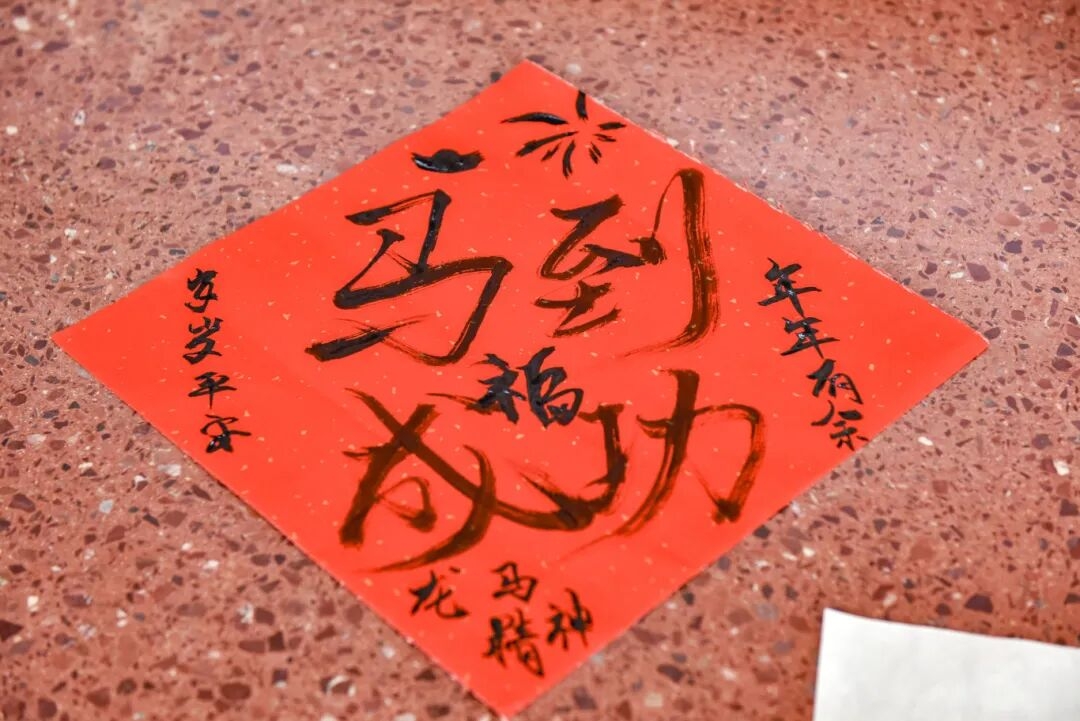 马到
成功
福
岁岁平安
年年有余
龙马
精神